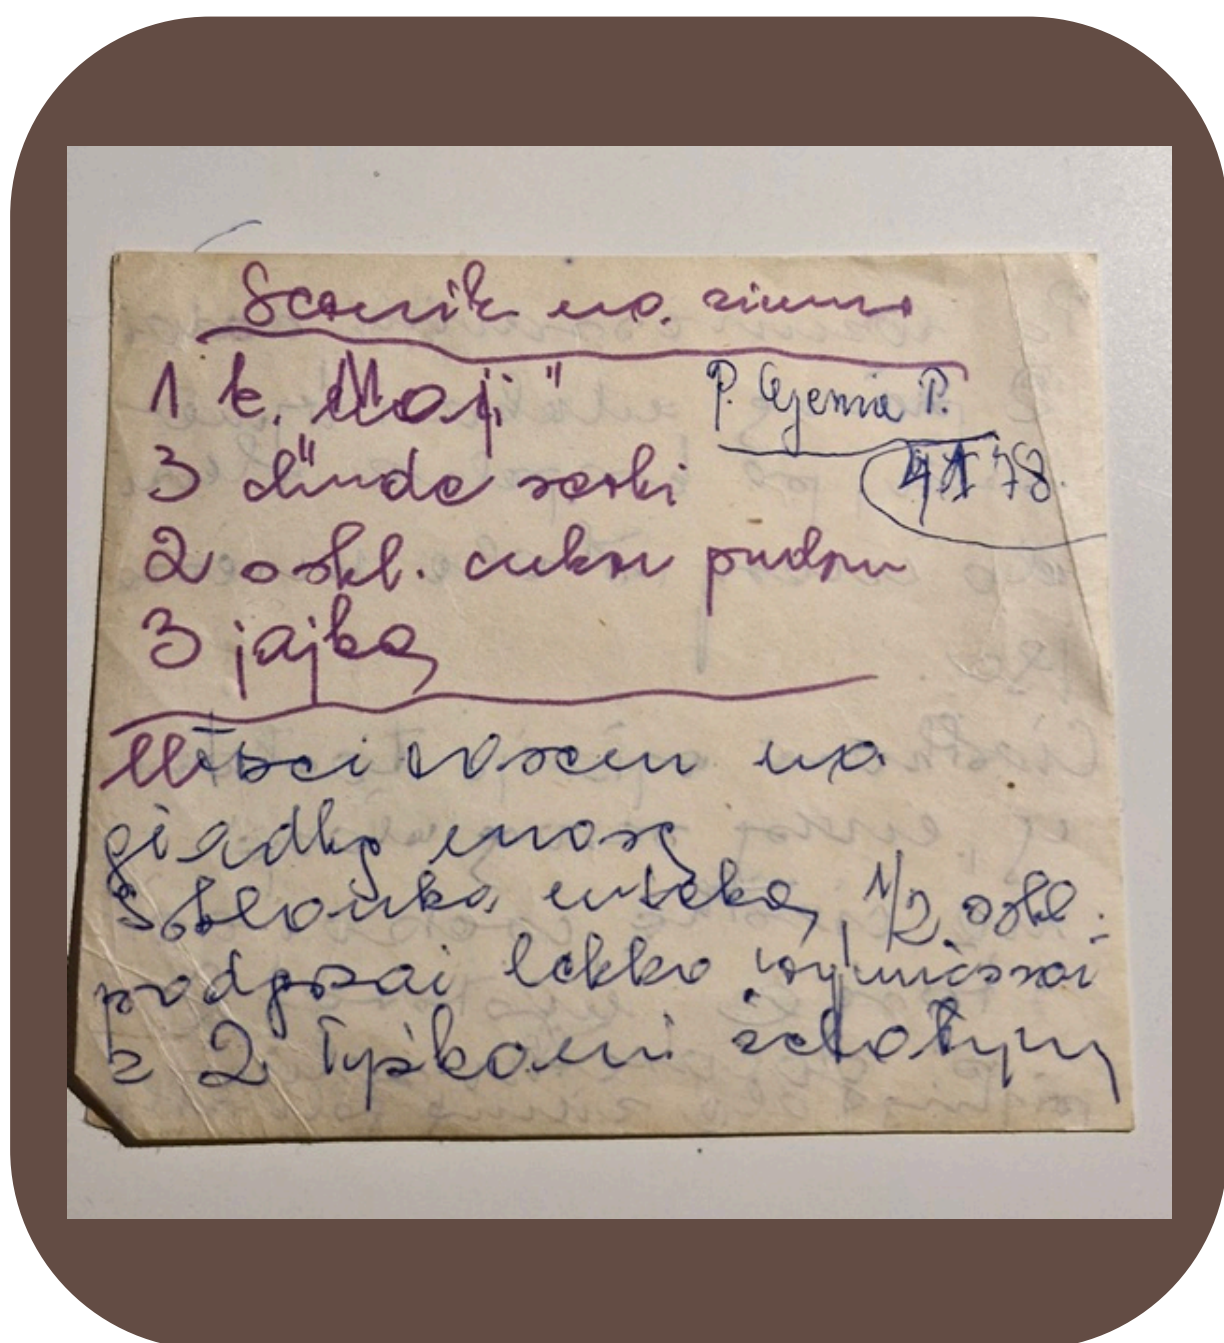 Sernik na zimno
1 k. "Maji"
P. Gienia P.
3 dude serki
4 X 78
2 szkl. cukru pudru
3 jajka
Utrzeć razem na
gładką masę
Szklanka mleka, 1/2 szkl.
podgrzać lekko wymieszać
z 2 łyżkami żelatyny